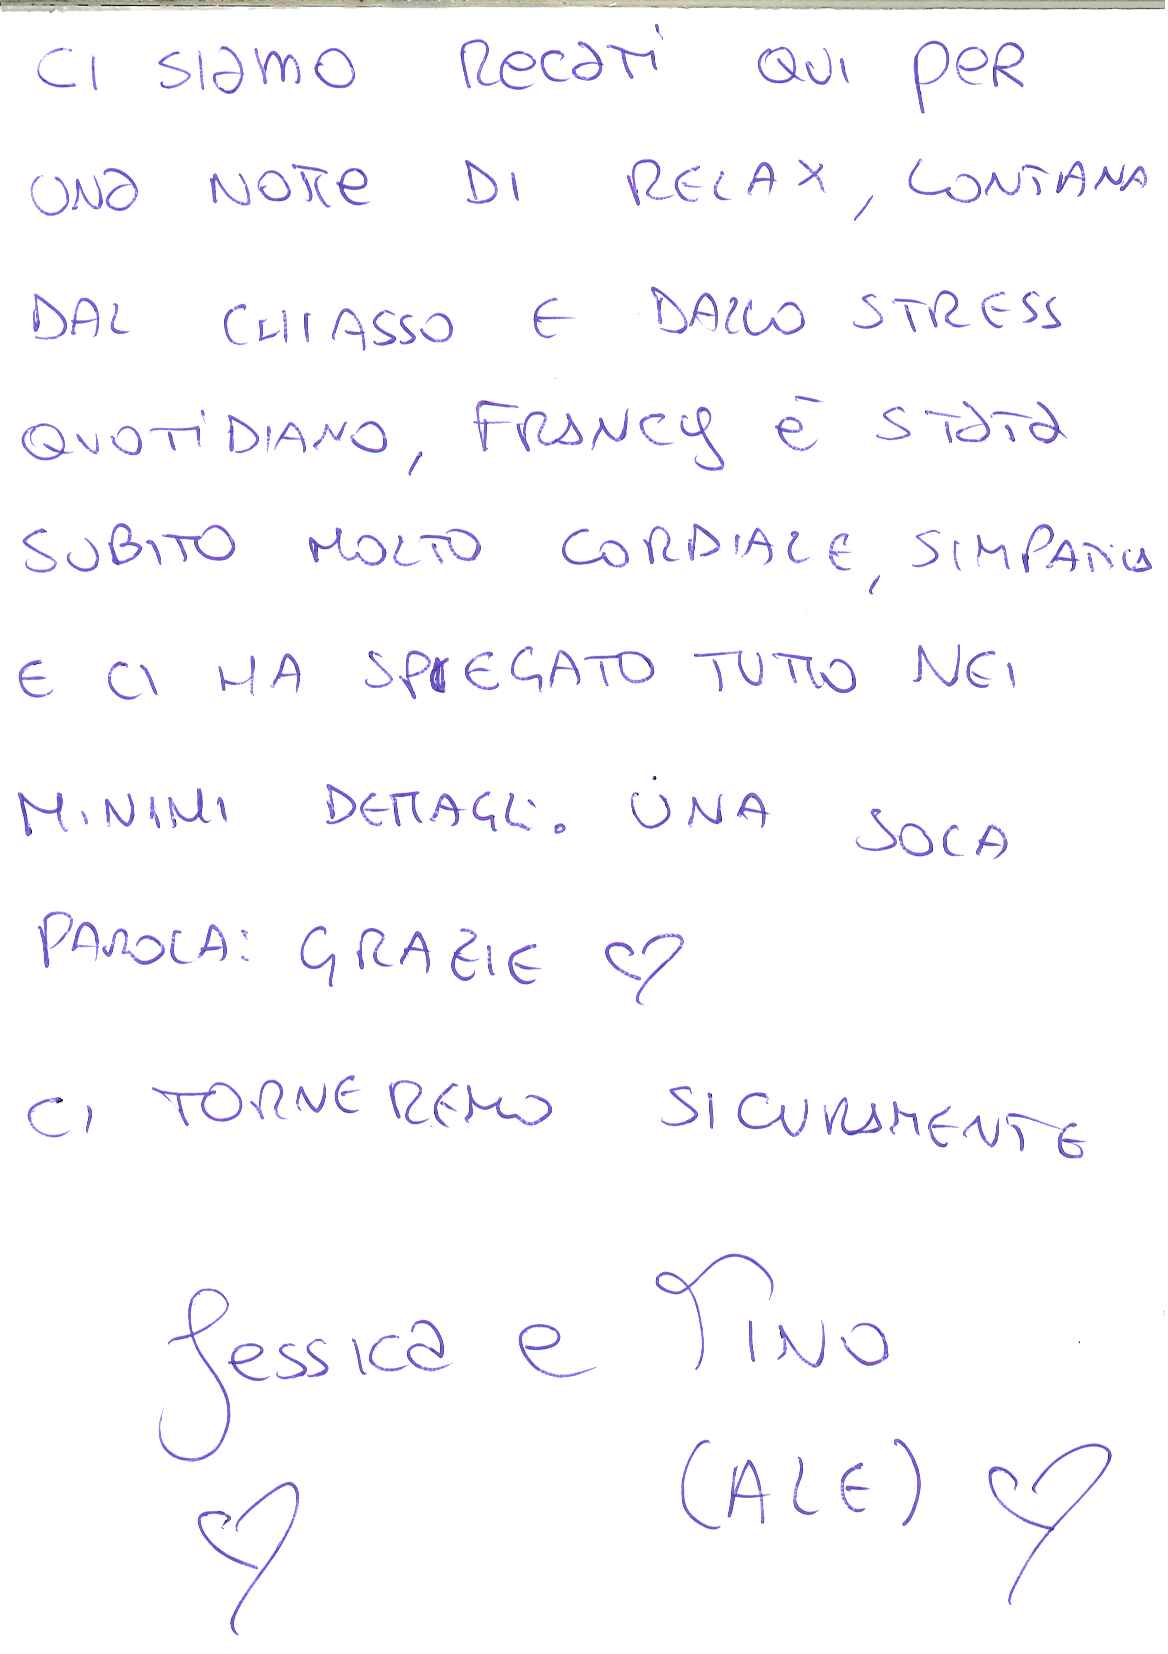 CI SIAMO RECATI QUI PER
UNA NOTTE DI RELAX, LONTANA
DAL CHIASSO E DALLO STRESS
QUOTIDIANO, FRANCY È STATA
SUBITO MOLTO CORDIALE, SIMPATICA
E CI HA SPIEGATO TUTTO NEI
MINIMI DETTAGLI. UNA SOLA
PAROLA: GRAZIE ♡
CI TORNEREMO SICURAMENTE
Jessica e TINO
(ALE) ♡
♡